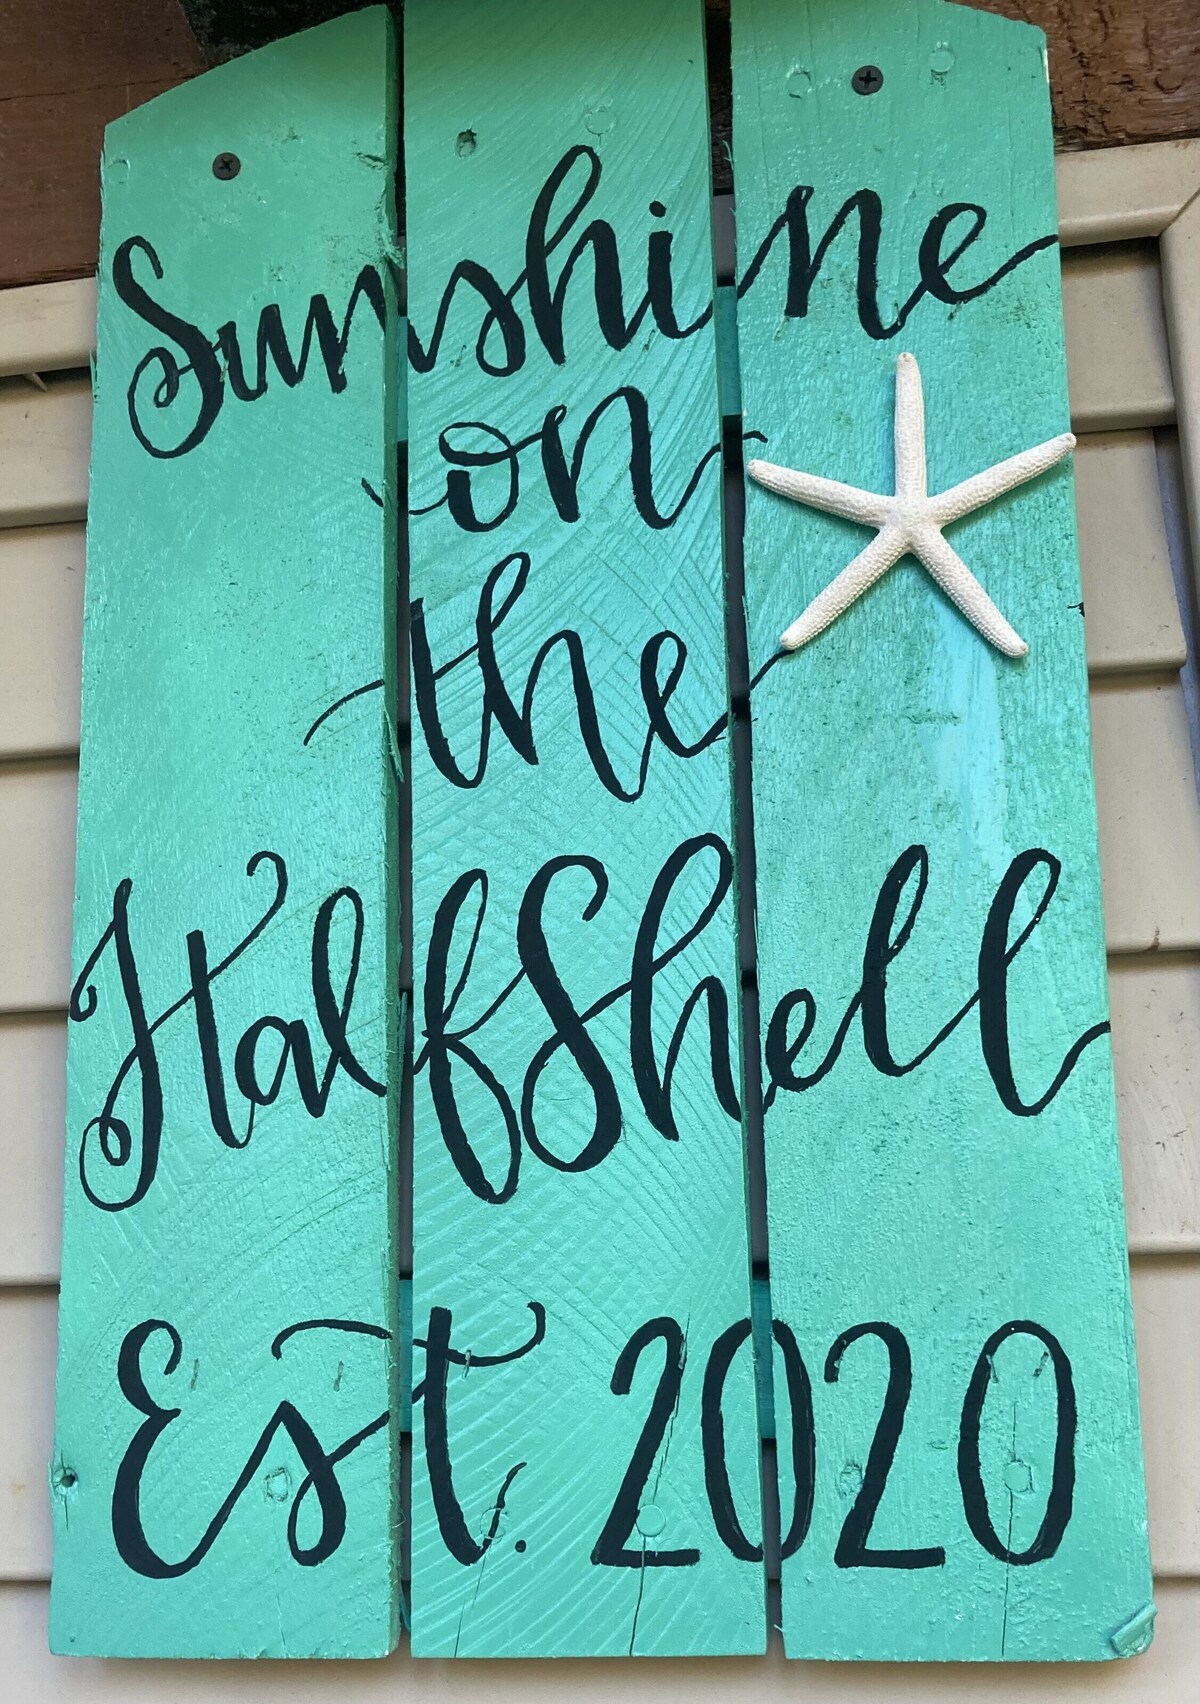 Sunshine
on
the
HalfShell
Est. 2020